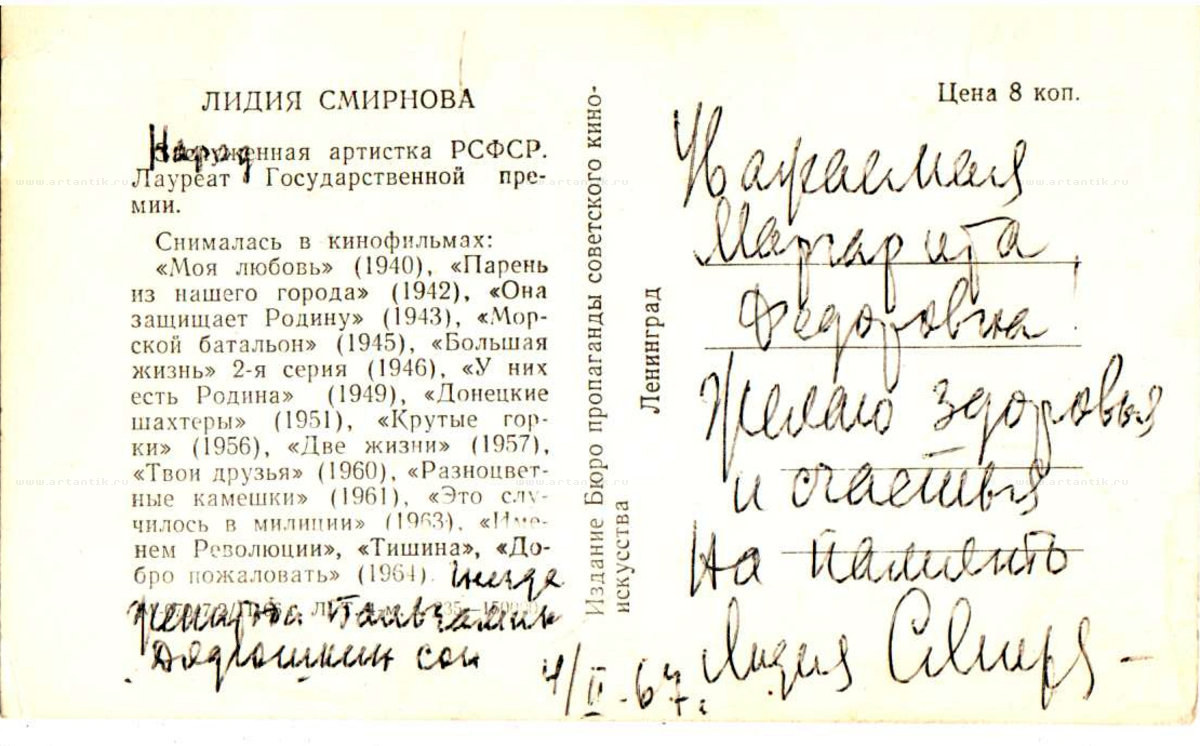 ЛИДИЯ СМИРНОВА
Народ
Заслуженная артистка РСФСР.
Лауреат Государственной пре-
мии.
Снималась в кинофильмах:
«Моя любовь» (1940), «Парень
из нашего города» (1942), «Она
защищает Родину» (1943), «Мор-
ской батальон» (1945), «Большая
жизнь» 2-я серия (1946), «У них
есть Родина» (1949), «Донецкие
шахтеры» (1951), «Крутые гор-
ки» (1956), «Две жизни» (1957),
«Твои друзья» (1960), «Разноцвет-
ные камешки» (1961), «Это слу-
чилось в милиции» (1963), «Име-
нем Революции», «Тишина», «До-
бро пожаловать» (1964).
Женитьба Бальзаминова
Дядюшкин сон
4/II-67 г.
Издание Бюро пропаганды советского кино-
искусства
Ленинград
Цена 8 коп.
Уважаемая
Маргарита
Федоровна!
Желаю здоровья
и счастья
На память
Лидия Смирн
www.artantik.ru
www.artantik.ru
www.artantik.ru
www.artantik.ru
www.artantik.ru
www.artantik.ru